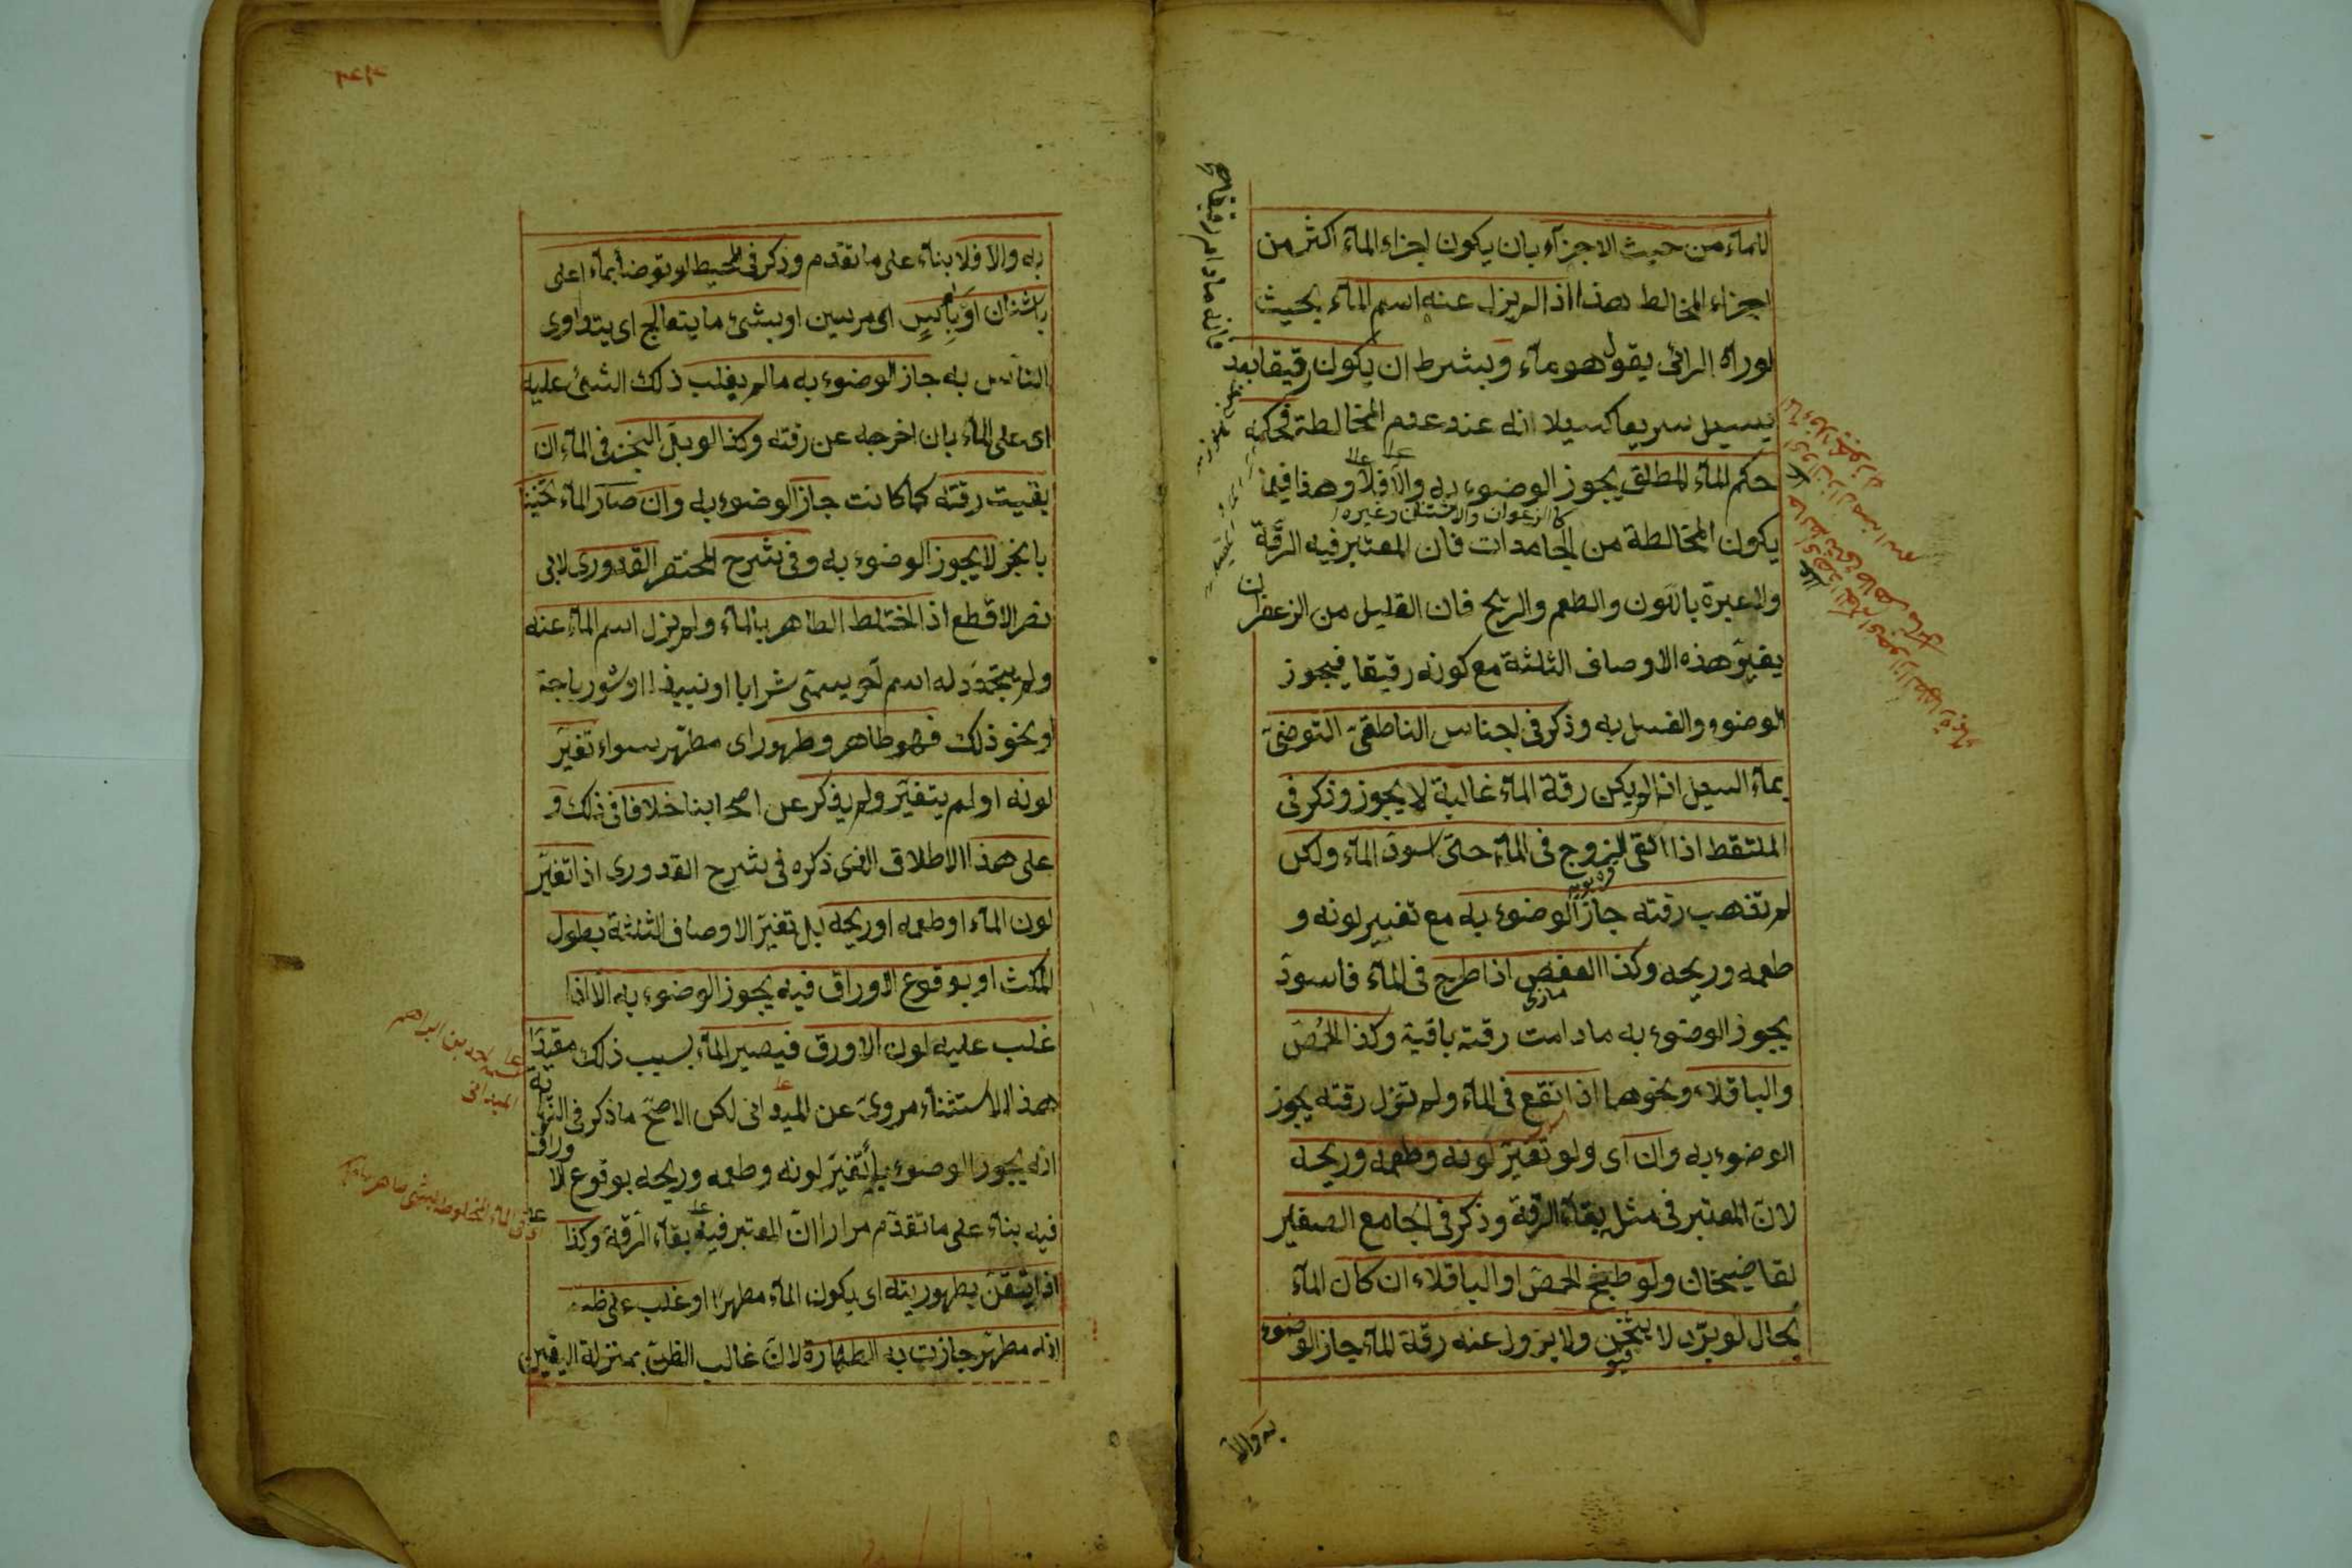 للماء من حيث الاجزاء بان يكون اجزاء الماء اكثر من
اجزاء المخالط هذا اذا لم يزل عنه اسم الماء بحيث
لو رآه الرائى يقول هو ماء وبشرط ان يكون رقيقا بعد
يسيل سريعا كسيلانه عند عدم المخالطة فحكمه
حكم الماء المطلق يجوز الوضوء به والا فلا وهذا فيما
كالزعفران والاشنان وغيره
يكون المخالطة من الجامدات فان المعتبر فيه الرقة
ولا عبرة باللون والطعم والريح فان القليل من الزعفران
يغير هذه الاوصاف الثلثة مع كونه رقيقا فيجوز
الوضوء والغسل به وذكر فى اجناس الناطفى التوضى
بماء السيل ان لم يكن رقة الماء غالبة لا يجوز وذكر فى
الملتقط اذا القى الزوج فى الماء حتى اسود الماء ولكن
لم تذهب رقته جاز الوضوء به مع تغيير لونه و
طعمه وريحه وكذا العفص اذا طرح فى الماء فاسود
مازى
يجوز الوضوء به مادامت رقته باقية وكذا الحمص
والباقلاء ونحوهما اذا نقع فى الماء ولم تزل رقته يجوز
الوضوء به وان اى ولو تغير لونه وطعمه وريحه
لان المعتبر فى مثل بقاء الرقة وذكر فى الجامع الصغير
لقاضيخان ولو طبخ الحمص او الباقلاء ان كان الماء
بحال لو برد لا يثخن ولا يزول عنه رقة الماء جاز الوضوء
به والا
به والا فلا بناء على ما تقدم وذكر فى المحيط لو توضأ بماء اغلى
باشنان او بآس اى مرسين او بشئ مما يتعالج اى يتداوى
الناس به جاز الوضوء به ما لم يغلب ذلك الشئ عليه
اى على الماء بان اخرجه عن رقته وكذا لو بل الخبز فى الماء ان
بقيت رقته كما كانت جاز الوضوء به وان صار الماء ثخينا
بالخبز لا يجوز الوضوء به وفى شرح المختصر القدورى لابى
نصر الاقطع اذا اختلط الطاهر بالماء ولم يزل اسم الماء عنه
ولم يتجدد له اسم آخر يسمى شرابا او نبيذا او شورباجة
او نحو ذلك فهو طاهر وطهور اى مطهر سواء تغير
لونه او لم يتغير ولم يذكر عن اصحابنا خلافا فى ذلك و
على هذا الاطلاق الذى ذكره فى شرح القدورى اذا تغير
لون الماء او طعمه او ريحه بل تغير الاوصاف الثلثة بطول
المكث او بوقوع الاوراق فيه يجوز الوضوء به الا اذا
غلب عليه لون الاورق فيصير الماء بسبب ذلك مقيدا
هذا الاستثناء مروى عن الميدانى لكن الاصح ما ذكر فى النهاية
انه يجوز الوضوء بما تغير لونه وطعمه وريحه بوقوع الاوراق
فيه بناء على ما تقدم مرارا ان المعتبر فيه بقاء الرقة وكذا
اذا تيقن بطهوريته اى يكون الماء مطهرا او غلب على ظنه
انه مطهر جازت به الطهارة لان غالب الظن بمنزلة اليقين
احمد بن ابراهيم
الميدانى